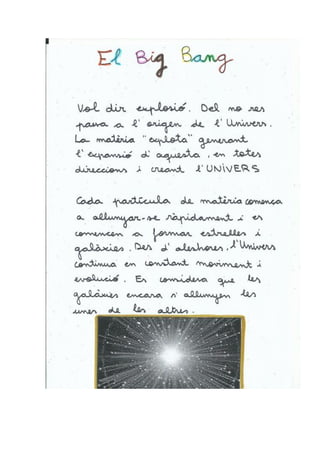 El Big Bang
Vol dir explosió. Del no res
passa a l'origen de l'Univers.
La matèria "explota" generant
l'expansió d'aquesta, en totes
direccions i creant l'UNIVERS
Cada partícula de matèria comença
a allunyar-se ràpidament i es
comencen a formar estrelles i
galàxies. Des d'aleshores, l'Univers
continua en constant moviment i
evolució. Es considera que les
galàxies encara s'allunyen les
unes de les altres.